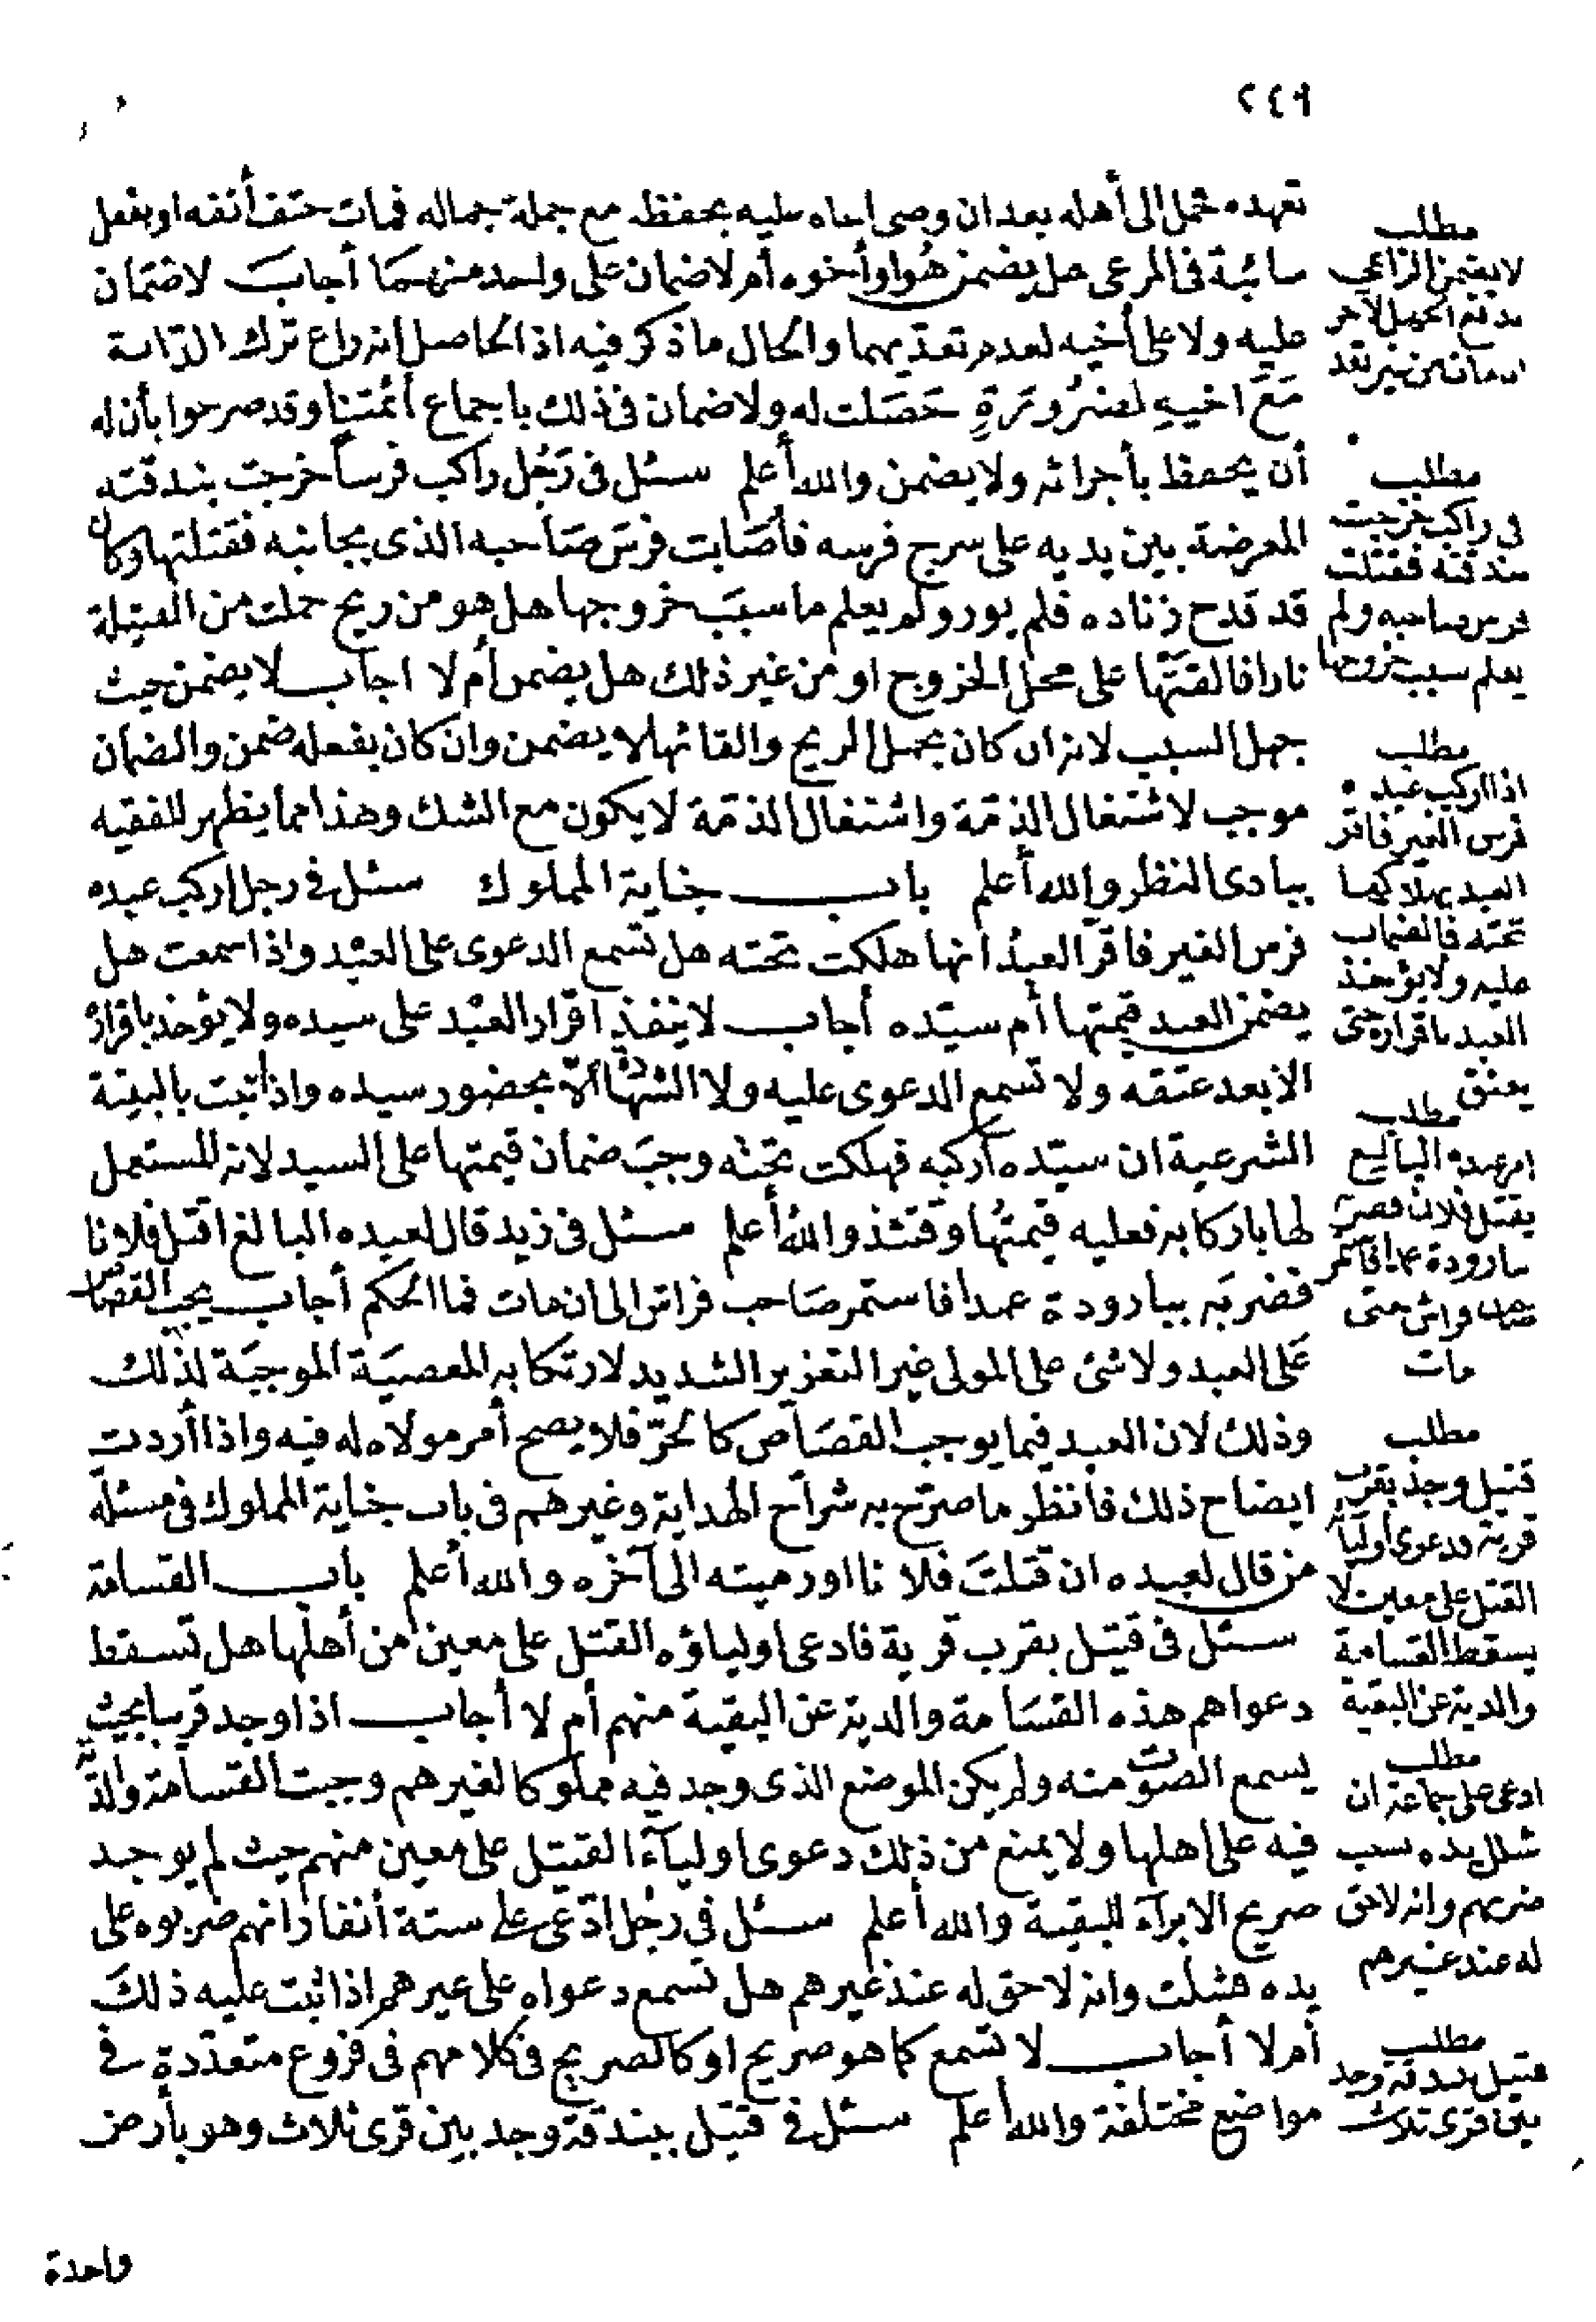 ٢٤٩
تعهده فحمل الى أهله بعد ان وصى اخاه عليه بحفظه مع جملة جماله فمات حتف أنفه او بفعل
سائبة فى المرعى هل يضمن هو او أخوه أم لا ضمان على واحد منهما أجاب لا ضمان
عليه ولا على أخيه لعدم تعديهما والحال ما ذكر فيه اذ الحاصل انه راع ترك الدابة
مع اخيه لضرورة حصلت له ولا ضمان فى ذلك باجماع أئمتنا وقد صرحوا بأن له
أن يحفظ بأجرائه ولا يضمن والله أعلم سئل فى رجل راكب فرسا خرجت بندقته
المعرضة بين يديه على سرج فرسه فأصابت فرس صاحبه الذى بجانبه فقتلتها وكان
قد قدح زناده فلم يور ولم يعلم ما سبب خروجها هل هو من ريح حملت من الفتيلة
نارا فالقتها على محل الخروج او من غير ذلك هل يضمن أم لا اجاب لا يضمن حيث
جهل السبب لانه ان كان بحمل الريح والقائها لا يضمن وان كان بفعله ضمن والضمان
موجب لاشتغال الذمة واشتغال الذمة لا يكون مع الشك وهذا مما يظهر للفقيه
ببادى النظر والله أعلم باب جناية المملوك سئل فى رجل اركب عبده
فرس الغير فاقر العبد انها هلكت تحته هل تسمع الدعوى على العبد واذا سمعت هل
يضمن العبد قيمتها أم سيده أجاب لا ينفذ اقرار العبد على سيده ولا يؤخذ باقراره
الا بعد عتقه ولا تسمع الدعوى عليه ولا الشهادة الا بحضور سيده واذا ثبت بالبينة
الشرعية ان سيده أركبه فهلكت تحته وجب ضمان قيمتها على السيد لانه المستعمل
لها باركابه فعليه قيمتها وقتئذ والله أعلم سئل فى زيد قال لعبده البالغ اقتل فلانا
فضربه ببارودة عمدا فاستمر صاحب فراش الى ان مات فما الحكم أجاب يجب القصاص
على العبد ولا شئ على المولى غير التعزير الشديد لارتكابه المعصية الموجبة لذلك
وذلك لان العبد فيما يوجب القصاص كالحر فلا يصح أمر مولاه له فيه واذا أردت
ايضاح ذلك فأنظر ما صرح به شراح الهداية وغيرهم فى باب جناية المملوك فى مسئلة
من قال لعبده ان قتلت فلانا او رميته الى آخره والله أعلم باب القسامة
سئل فى قتيل بقرب قرية فادعى اولياؤه القتل على معين من أهلها هل تسقط
دعواهم هذه القسامة والدية عن البقية منهم أم لا أجاب اذا وجد قريبا بحيث
يسمع الصوت منه ولم يكن الموضع الذى وجد فيه مملوكا لغيرهم وجبت القسامة والدية
فيه على اهلها ولا يمنع من ذلك دعوى اولياء القتيل على معين منهم حيث لم يوجد
صريح الابراء للبقية والله أعلم سئل فى رجل ادعى على ستة أنفار انهم ضربوه على
يده فشلت وانه لا حق له عند غيرهم هل تسمع دعواه على غيرهم اذا ثبت عليه ذلك
أم لا أجاب لا تسمع كما هو صريح او كالصريح فى كلامهم فى فروع متعددة فى
مواضع مختلفة والله أعلم سئل فى قتيل ببندقة وجد بين قرى ثلاث وهو بأرض
واحدة
مطلب
لا يضمن الراعى
بدفع الجمل لآخر
مطلب
فى راكب خرجت
بندقته فقتلت
فرس صاحبه ولم
يعلم سبب خروجها
مطلب
اذا اركب عبده
فرس الغير فاقر
العبد بهلاكها
تحته فالضمان
عليه ولا يؤخذ
العبد باقراره حتى
يعتق
مطلب
امر عبده البالغ
بقتل فلان فضربه
ببارودة عمدا فاستمر
صاحب فراش حتى
مات
مطلب
قتيل وجد بقرب
قرية ودعوى اوليائه
القتل على معين لا
يسقط القسامة
والدية عن البقية
مطلب
ادعى على جماعة ان
شلل يده بسبب
ضربهم وانه لا حق
له عند غيرهم
مطلب
قتيل ببندقة وجد
بين قرى ثلاث